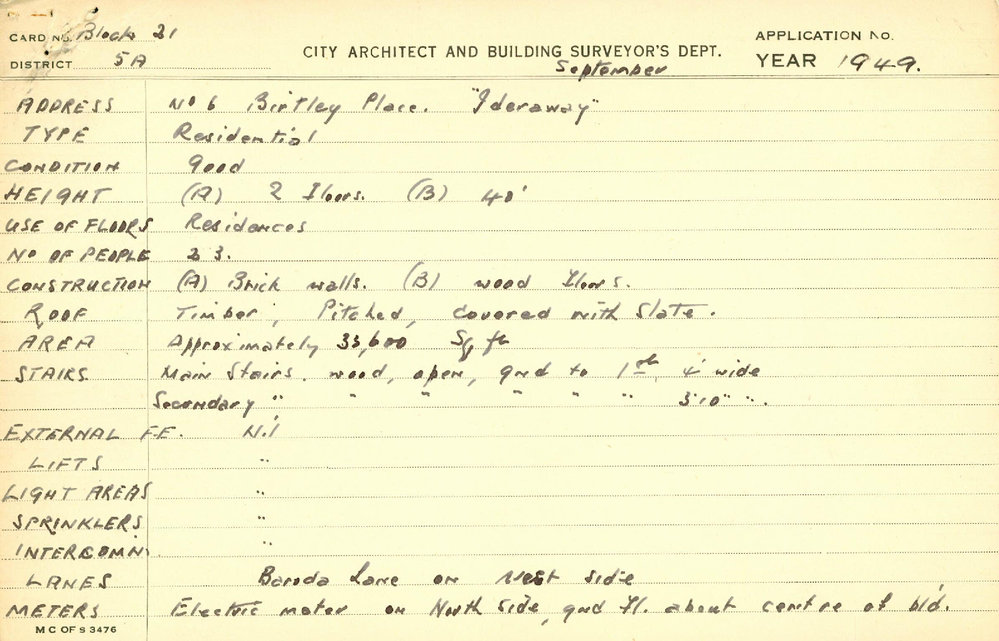 CARD NO. Block 21
CITY ARCHITECT AND BUILDING SURVEYOR'S DEPT.
APPLICATION NO.
DISTRICT 5A
September
YEAR 1949.
ADDRESS No 6 Birtley Place. "Ideraway"
TYPE Residential
CONDITION Good
HEIGHT (A) 2 Floors. (B) 40'
USE OF FLOORS Residences
No OF PEOPLE 23.
CONSTRUCTION (A) Brick walls. (B) wood Floors.
ROOF Timber, Pitched, covered with Slate.
AREA Approximately 33,600 Sq ft
STAIRS Main Stairs. wood, open, gnd to 1st, 4' wide
Secondary " " " " " " 3'0" ".
EXTERNAL F.E. Nil
LIFTS "
LIGHT AREAS "
SPRINKLERS "
INTERCOMN. "
LANES Baroda Lane on West side
METERS Electric meter on North Side, gnd Fl. about centre of bld.
M C OF S 3476